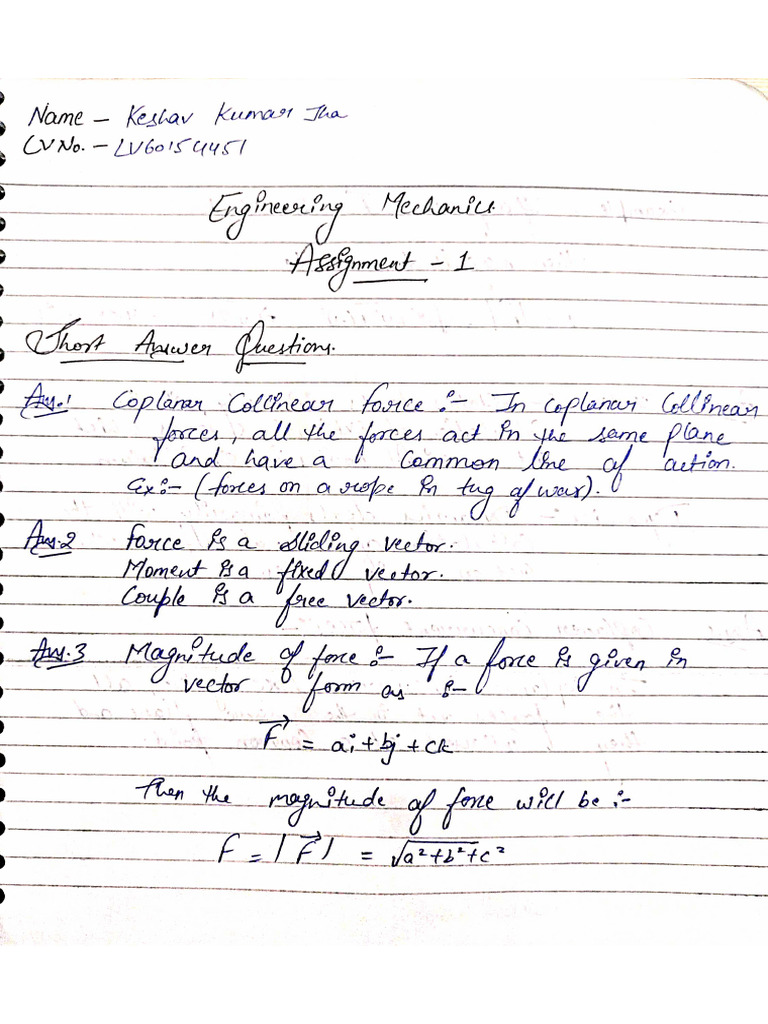 Name - Keshav Kumar Jha
LV No. - LV60154451
Engineering Mechanics
Assignment - 1
Short Answer Questions.
Ans.1 Coplanar Collinear force :- In coplanar Collinear
forces, all the forces act in the same plane
and have a common line of action.
Ex:- (forces on a rope in tug of war).
Ans.2 Force is a sliding vector.
Moment is a fixed vector.
Couple is a free vector.
Ans.3 Magnitude of force :- If a force is given in
vector form as :-
F⃗ = ai + bj + ck
Then the magnitude of force will be :-
F = |F⃗| = √a²+b²+c²